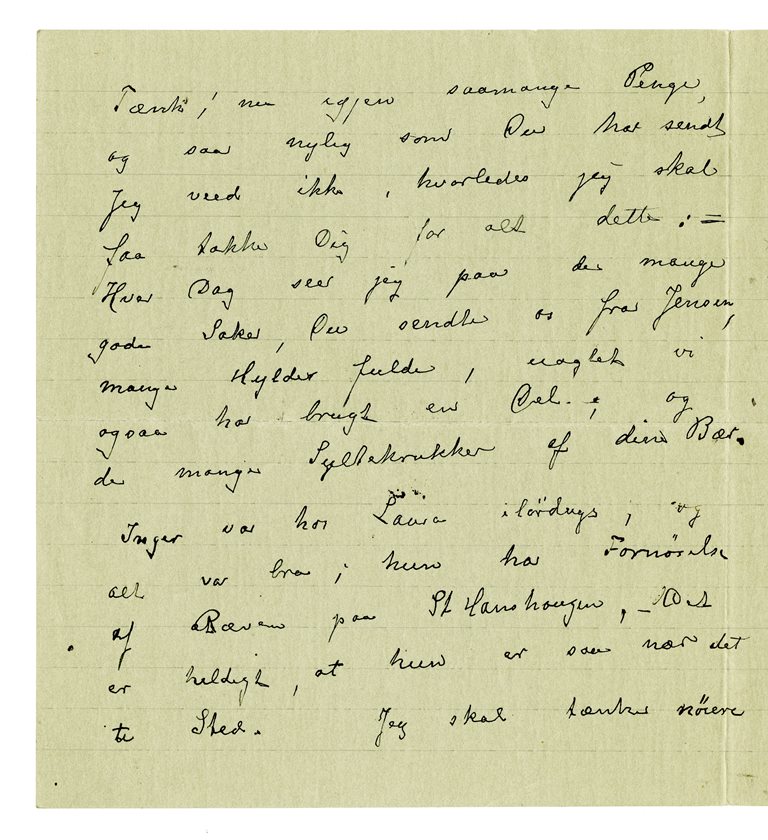 Tænk! nu igjen saamange Penge,
og saa nylig som Du har sendt
Jeg veed ikke, hvorledes jeg skal
faa takke Dig for alt dette: =
Hver Dag seer jeg paa de mange
gode Saker, Du sendte os fra Jensen,
mange Hylder fulde, uagtet vi
ogsaa har brugt en Del.; og
de mange Syltekrukker af dine Bær.
Inger var hos Laura ilørdags, og
alt var bra; hun har Fornøielse
af Bæven paa St Hanshaugen, – Det
er heldigt, at hun er saa nær det
te Sted. Jeg skal tænke nöiere